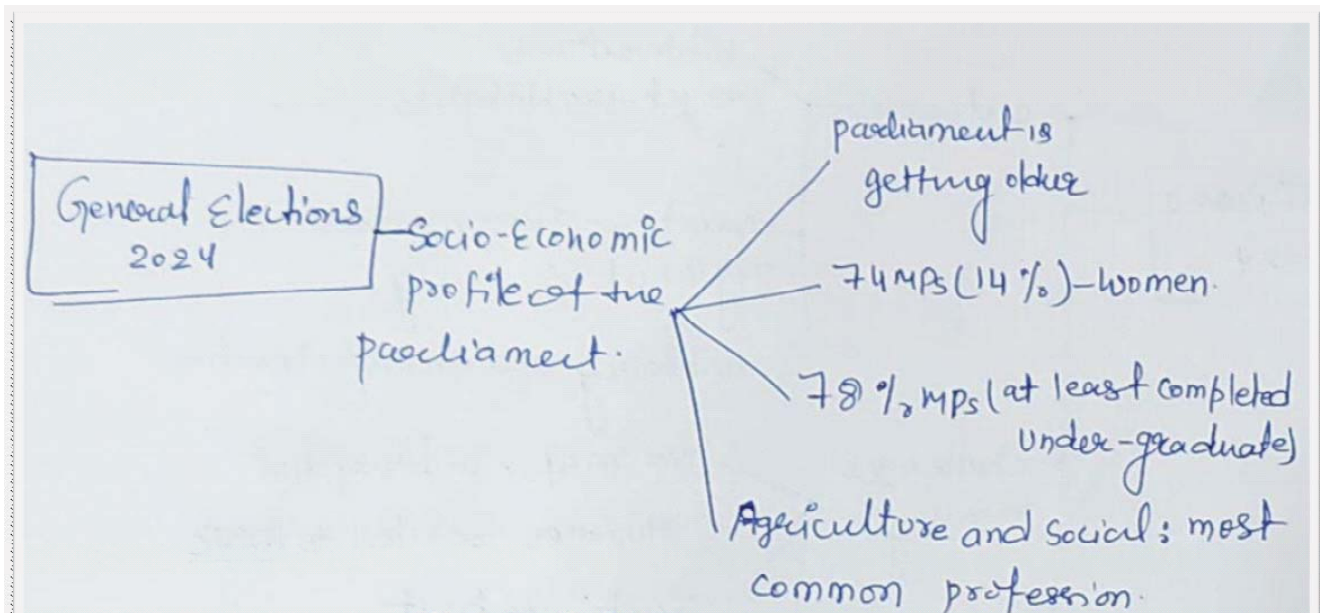 General Elections
2024
Socio-Economic
profile of the
parliament.
parliament is
getting older
74 MPs (14%) - Women.
78% MPs (at least completed
under-graduate)
Agriculture and Social: most
common profession.